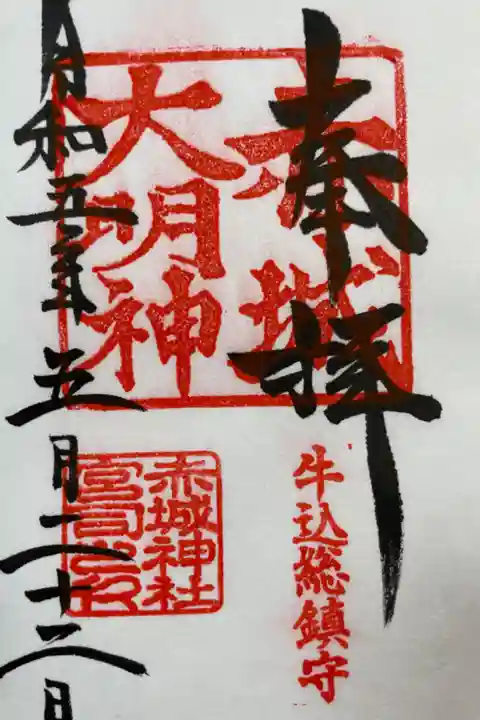 奉拝
赤城
大明神
牛込総鎮守
赤城神社
宮司之印
令和五年五月二十二日